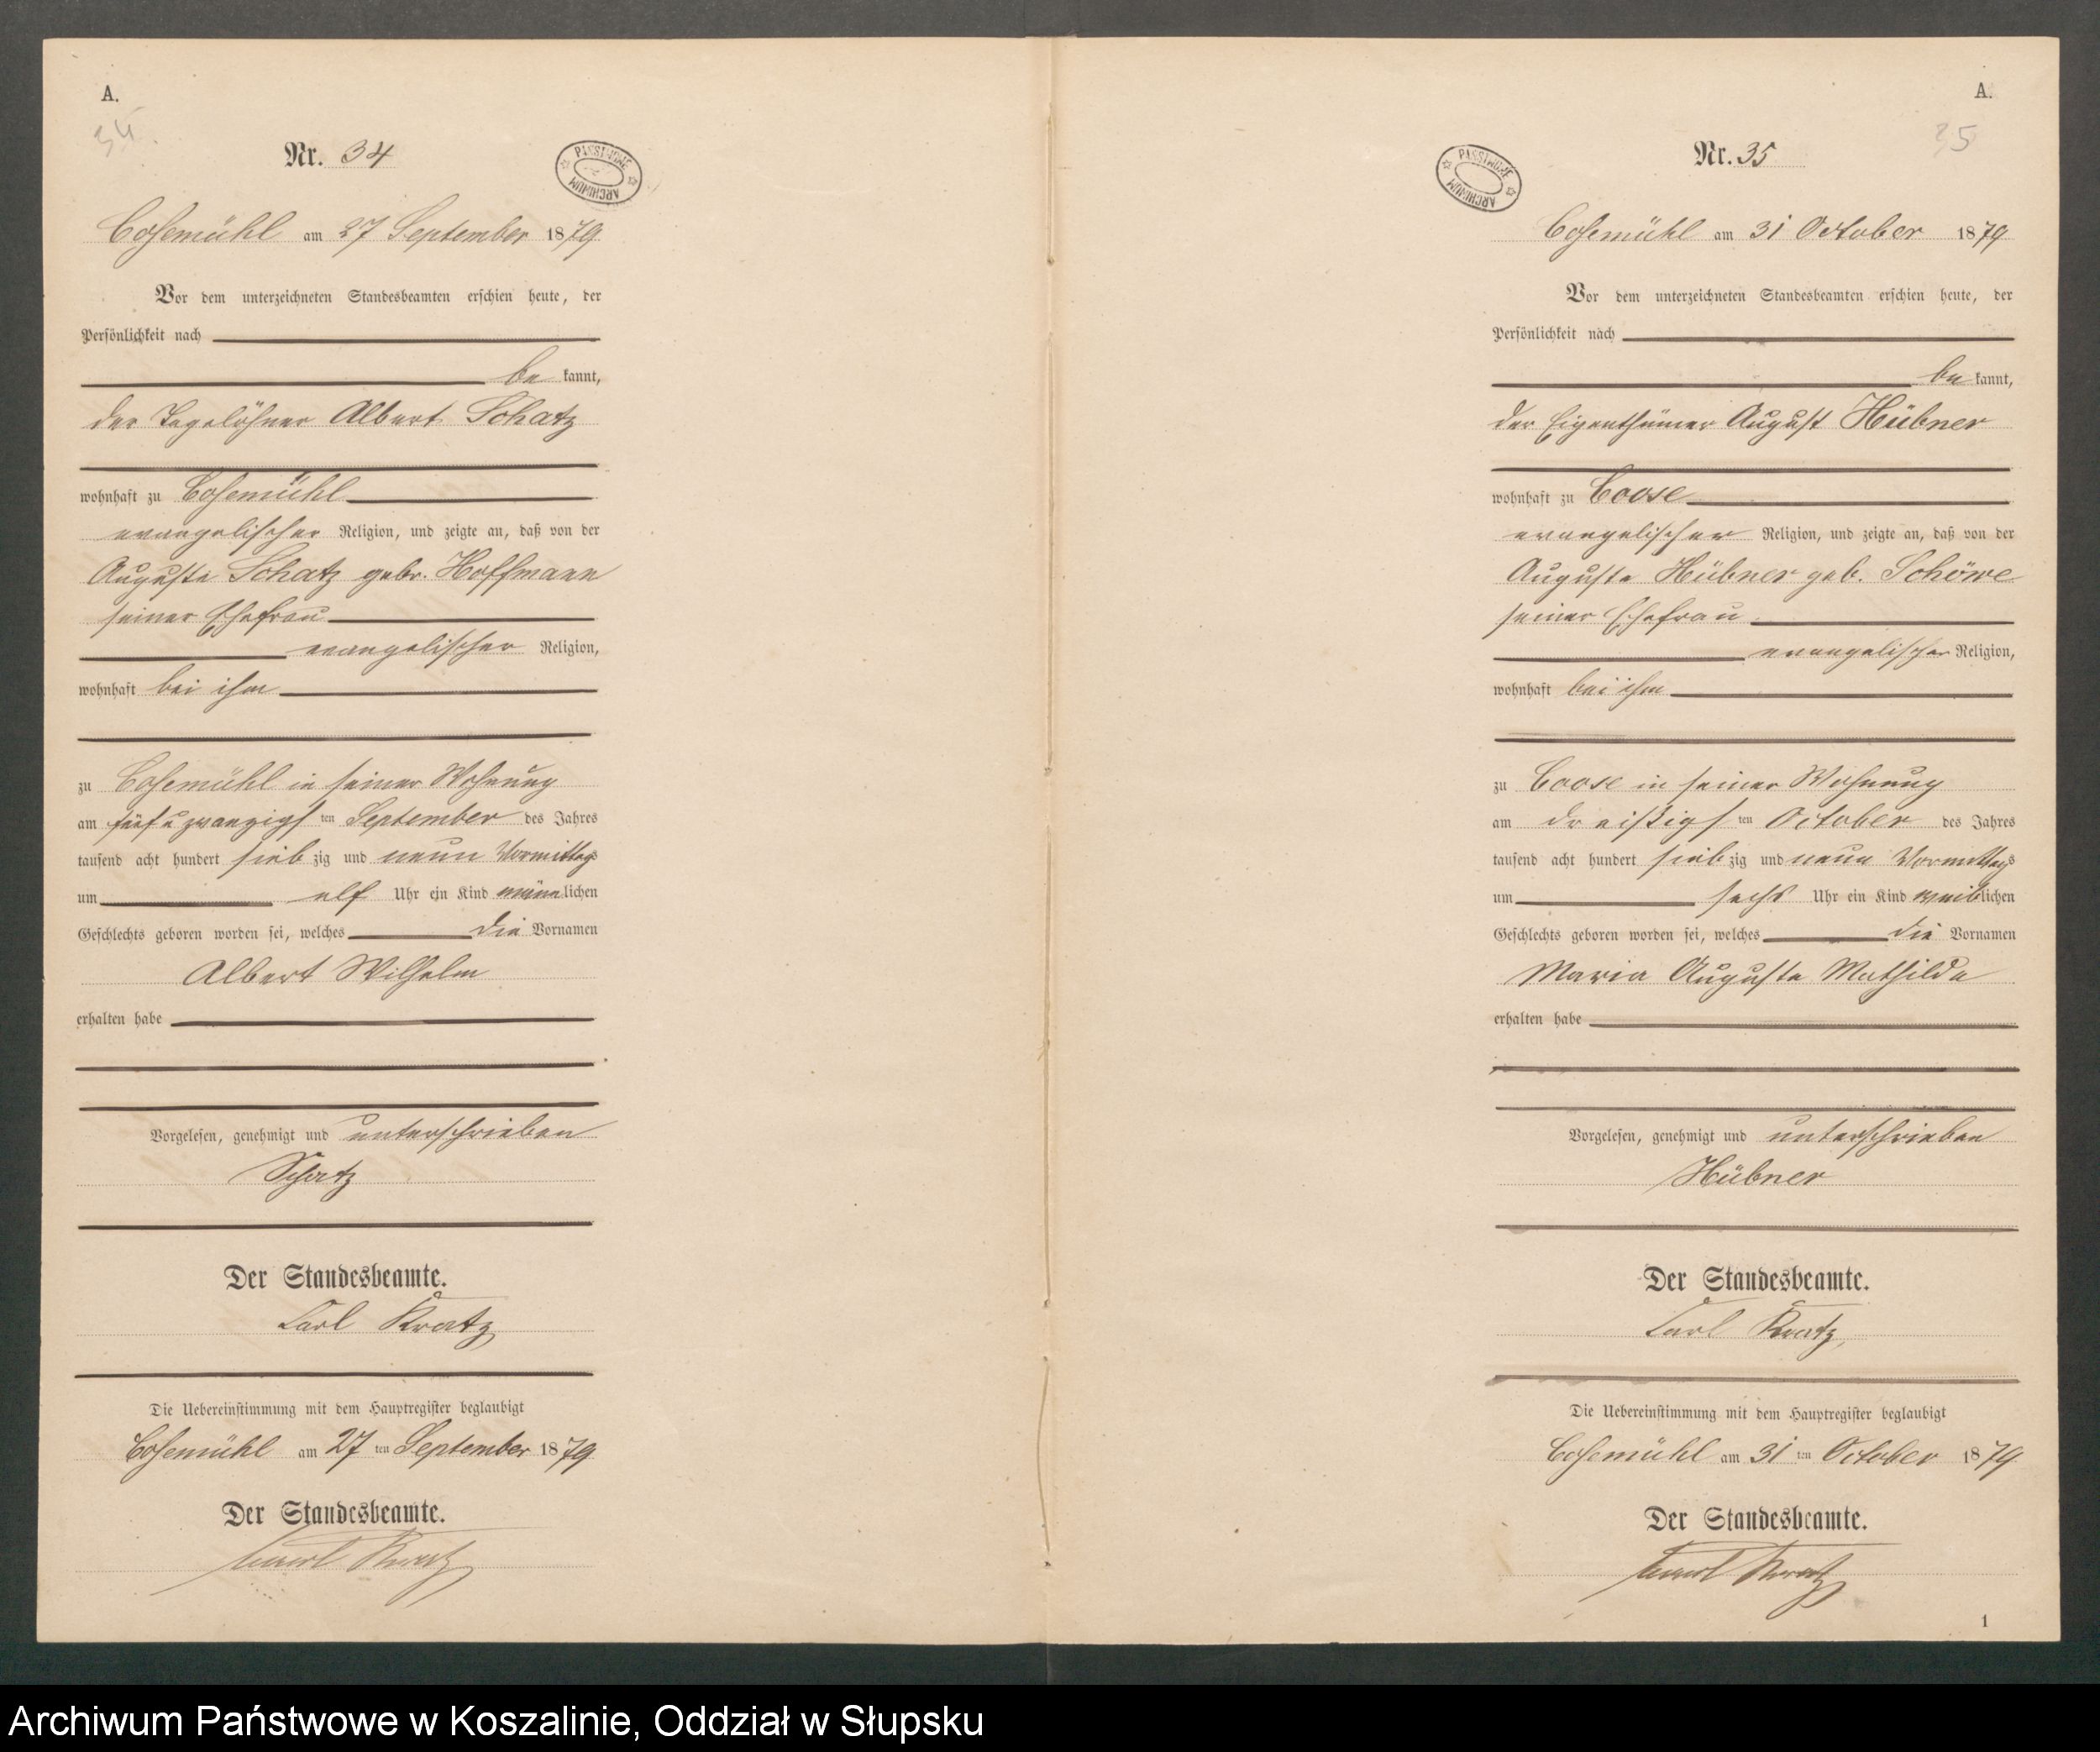 A.
34.
Nr. 34
PAŃSTWOWE ARCHIWUM
Cosemühl am 27 September 1879
Vor dem unterzeichneten Standesbeamten erschien heute, der
Persönlichkeit nach
be kannt,
der Tagelöhner Albert Schatz
wohnhaft zu Cosemühl
evangelischer Religion, und zeigte an, daß von der
Auguste Schatz gebr. Hoffmann
seiner Ehefrau
evangelischer Religion,
wohnhaft bei ihm
zu Cosemühl in seiner Wohnung
am fünf u zwanzigs ten September des Jahres
tausend acht hundert sieb zig und neun Vormittags
um elf Uhr ein Kind männ lichen
Geschlechts geboren worden sei, welches die Vornamen
Albert Wilhelm
erhalten habe
Vorgelesen, genehmigt und unterschrieben
Schatz
Der Standesbeamte.
Carl Kratz
Die Uebereinstimmung mit dem Hauptregister beglaubigt
Cosemühl am 27 ten September 1879
Der Standesbeamte.
Carl Kratz
A.
35
Nr. 35
PAŃSTWOWE ARCHIWUM
Cosemühl am 31 October 1879
Vor dem unterzeichneten Standesbeamten erschien heute, der
Persönlichkeit nach
be kannt,
der Eigenthümer August Hübner
wohnhaft zu Coose
evangelischer Religion, und zeigte an, daß von der
Auguste Hübner geb. Schöwe
seiner Ehefrau
evangelischer Religion,
wohnhaft bei ihm
zu Coose in seiner Wohnung
am dreißigs ten October des Jahres
tausend acht hundert sieb zig und neun Vormittags
um sechs Uhr ein Kind weib lichen
Geschlechts geboren worden sei, welches die Vornamen
Maria Auguste Mathilde
erhalten habe
Vorgelesen, genehmigt und unterschrieben
Hübner
Der Standesbeamte.
Carl Kratz
Die Uebereinstimmung mit dem Hauptregister beglaubigt
Cosemühl am 31 ten October 1879
Der Standesbeamte.
Carl Kratz
1
Archiwum Państwowe w Koszalinie, Oddział w Słupsku